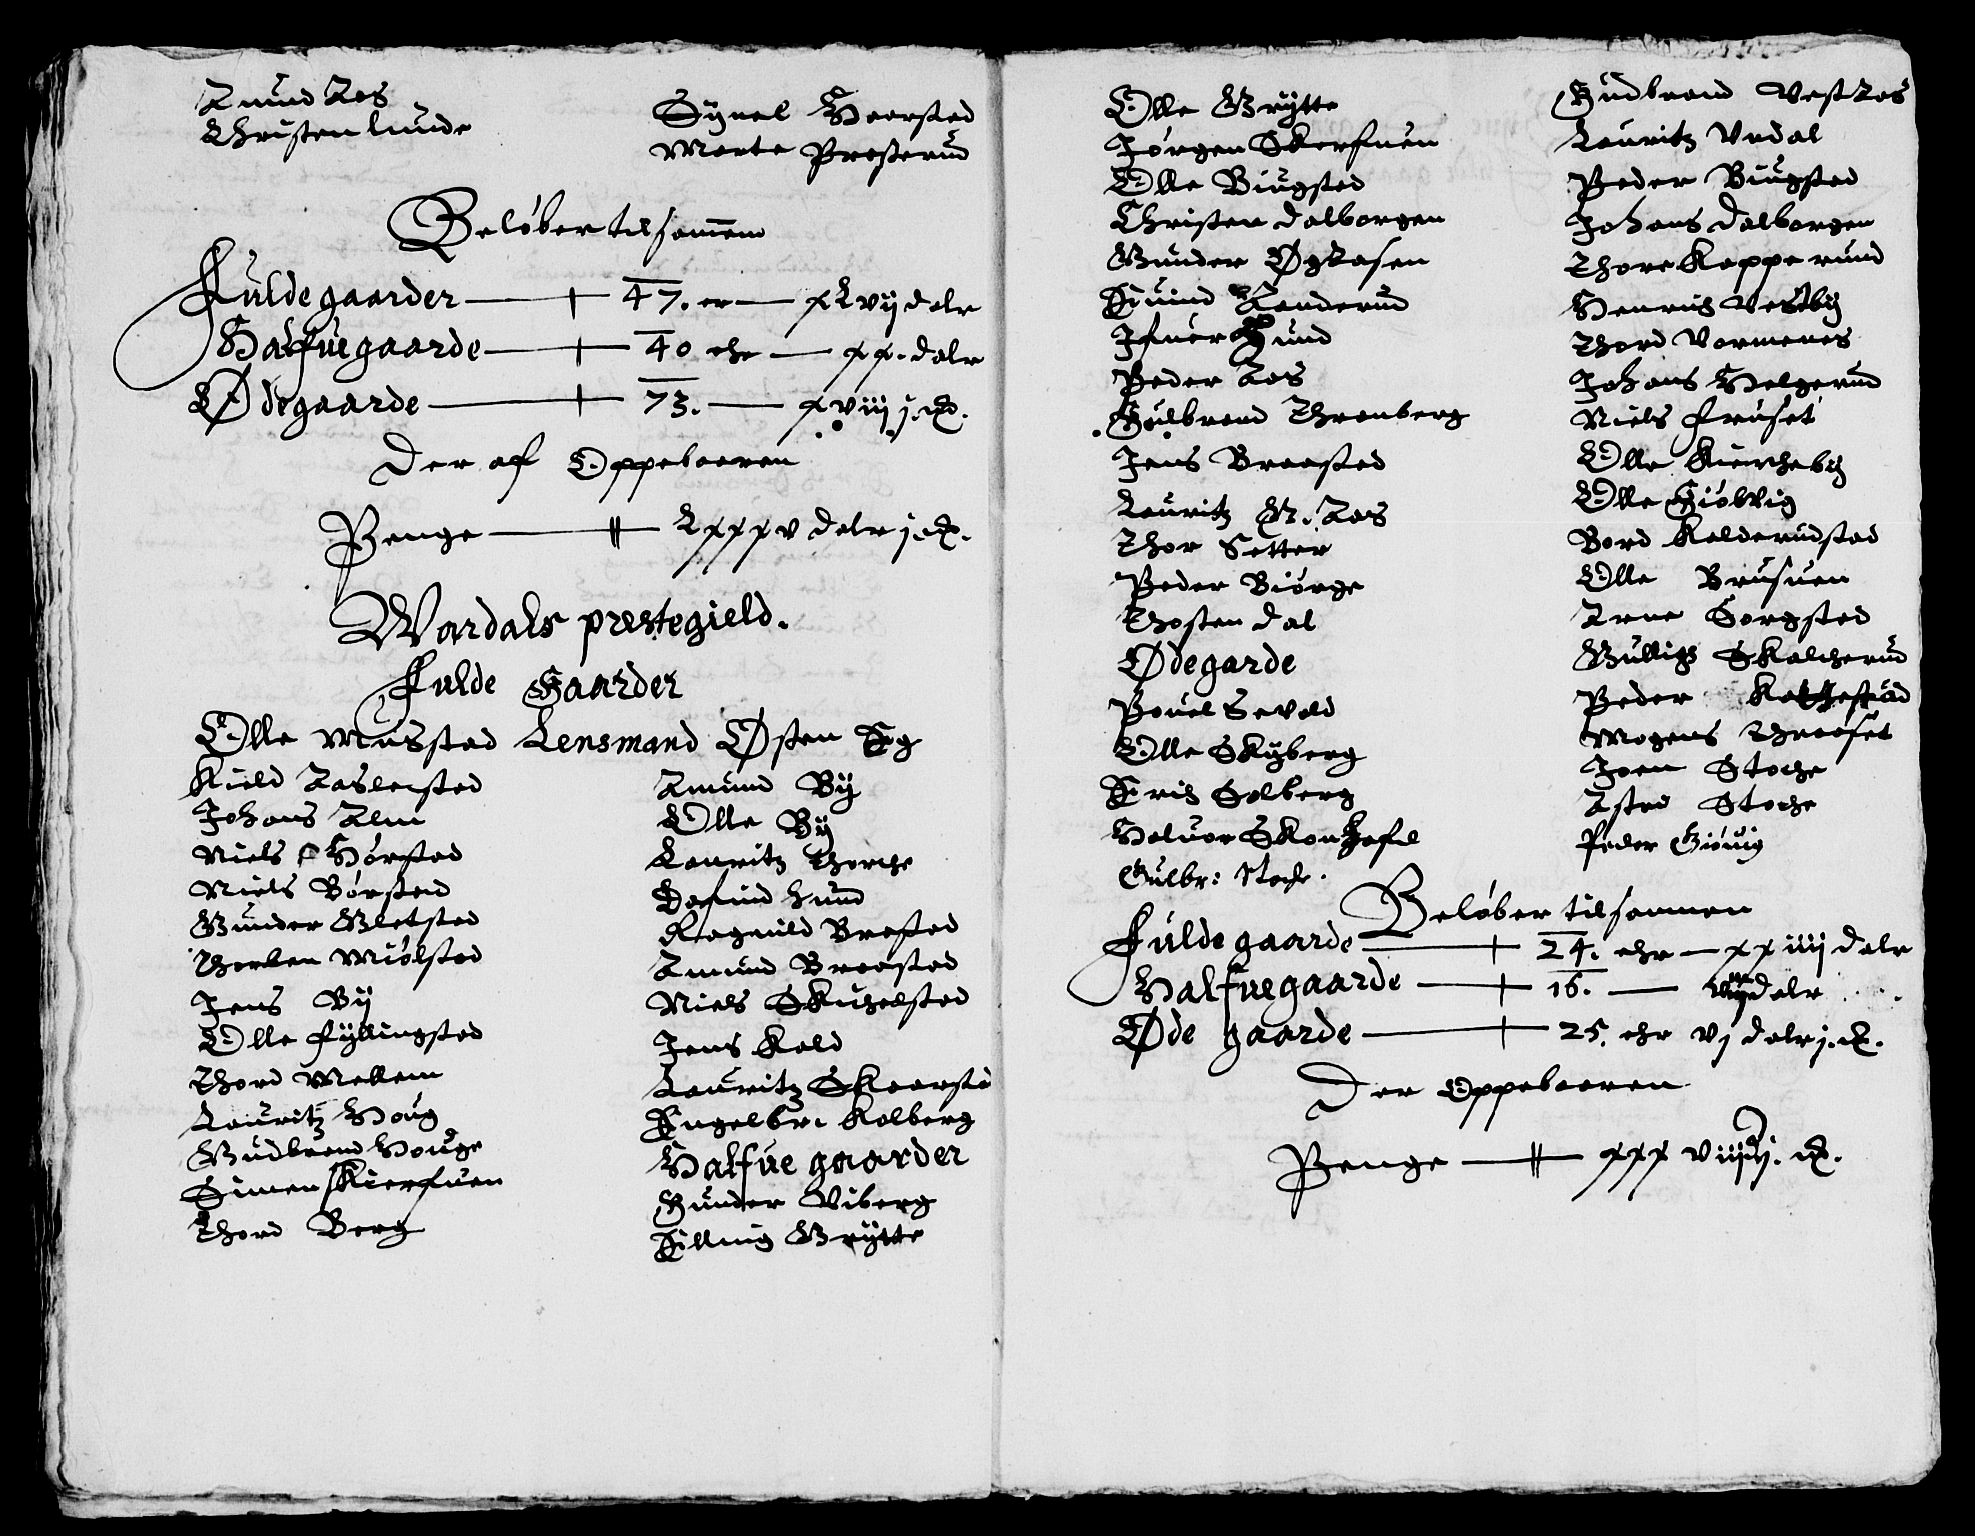 Amund Aas
Christen Lunde
Synel Haarstad
Marte Prosterud
Beløber tilsamen
Fulde gaarder — 47. er — xLvij dalr
Halfue gaarde — 40 ehr — xx. dalr
Ødegaarde — 73. — xviij j. ort.
Der af Oppebaaren
Penge — Lxxxv dalr j. ort.
Wardals prestegield.
Fulde Gaarder
Olle Musstad Lensmand Østen Eg
Kield Aaslestad
Johans Alm
Niels Hørstad
Niels Børsted
Gunder Gletstad
Thorben Miølstad
Jens By
Olle Fyllingstad
Thord Mellem
Lauritz Houg
Gudbrand Houge
Simen Skierfuen
Thord Berg
Amund By
Olle By
Lauritz Thorche
Dafuind Hund
Ragnild Brastad
Amund Braastad
Niels Skuchelstad
Jens Kald
Lauritz Skaarstad
Engelbr: Kolberg
Halfue gaarder
Gunder Viberg
Elling Grytte
Olle Grytte
Jørgen Skerfuen
Olle Biugstad
Christen Dalborgen
Gunder Øglasen
Euind Randerud
Ifuer Hund
Peder Aas
Gulbrand Thronberg
Jens Braastad
Lauritz N. Aas
Thor Setter
Peder Biørge
Thosten Dal
Ødegarde
Pouel Sevold
Olle Skyberg
Erich Solberg
Haluor Skonhofd
Gulbr: Stoche.
Gudbrand Vest Aas
Lauritz Vrdal
Peder Biugstad
Johans Dalborgen
Thore Kapperund
Henrich Vestby
Thord Vormenes
Johans Helgerud
Niels Fruset
Olle Kiercheby
Olle Giøluig
Bord Kalderudstad
Olle Brusuen
Arne Sorgstad
Gullich Skalcherud
Peder
Mogens Thraaset
Joen Stoche
Asted Stoche
Peder Giøuig
Beløber tilsammen
Fulde gaarde — 24. ehr — xxiiij dalr
Halfue gaarde — 16. — viij dalr
Øde gaarde — 25. ehr vj dalr j. ort.
Der Oppebaaren
Penge — xxxviij j. ort.